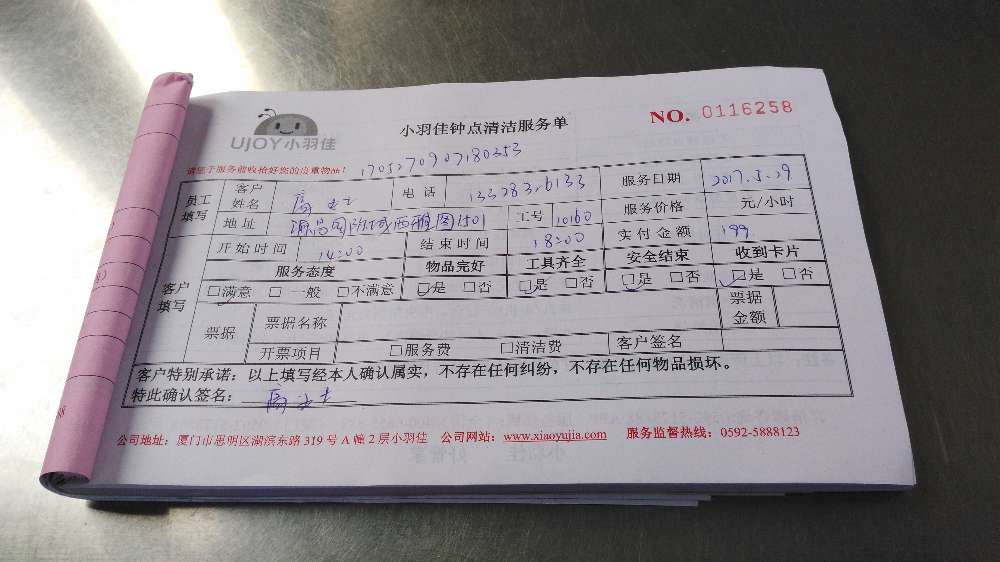 UJOY小羽佳
小羽佳钟点清洁服务单
NO. 0116258
请您于服务前收拾好您的贵重物品！
1705270907180353
员工填写
客户姓名 周女士 电话 服务日期 2017.5.29
地址 源昌国际城西雅图1501 工号 10160 服务价格 元/小时
开始时间 14:00 结束时间 18:00 实付金额 199
客户填写
服务态度 物品完好 工具齐全 安全结束 收到卡片
□满意 □一般 □不满意 □是 □否 □是 □否 □是 □否 □是 □否
票据 票据名称 票据金额
开票项目 □服务费 □清洁费 客户签名
客户特别承诺：以上填写经本人确认属实，不存在任何纠纷，不存在任何物品损坏。
特此确认签名： 周女士
公司地址：厦门市思明区湖滨东路 319 号 A 幢 2 层小羽佳 公司网站：www.xiaoyujia.com 服务监督热线：0592-5888123